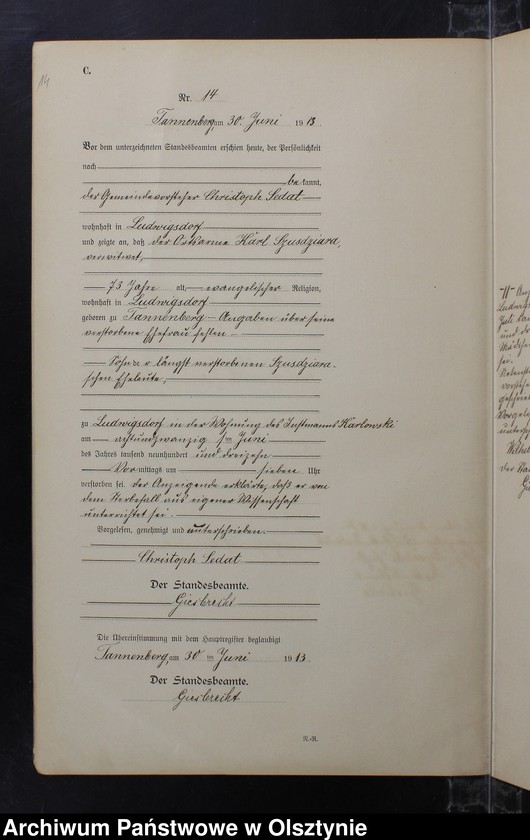 14
C.
Nr. 14
Tannenberg, am 30. Juni 1913.
Vor dem unterzeichneten Standesbeamten erschien heute, der Persönlichkeit
nach
bekannt,
der Gemeindevorsteher Christoph Sedat
wohnhaft in Ludwigsdorf
und zeigte an, daß der Ortsarme Karl Szusdziara,
verwitwet,
75 Jahre alt, evangelischer Religion,
wohnhaft in Ludwigsdorf
geboren zu Tannenberg – Angaben über seine
verstorbene Ehefrau fehlen –
Sohn der längst verstorbenen Szusdziara-
schen Eheleute,
zu Ludwigsdorf in der Wohnung des Instmanns Karlowski
am achtundzwanzigsten Juni
des Jahres tausend neunhundert und dreizehn
Vormittags um sieben Uhr
verstorben sei. Der Anzeigende erklärte, daß er von
dem Sterbefall aus eigener Wissenschaft
unterrichtet sei.
Vorgelesen, genehmigt und unterschrieben.
Christoph Sedat
Der Standesbeamte.
Giesbrecht
Die Übereinstimmung mit dem Hauptregister beglaubigt
Tannenberg, am 30ten Juni 1913.
Der Standesbeamte.
Giesbrecht
R.-R.
und
sei.
der
Archiwum Państwowe w Olsztynie